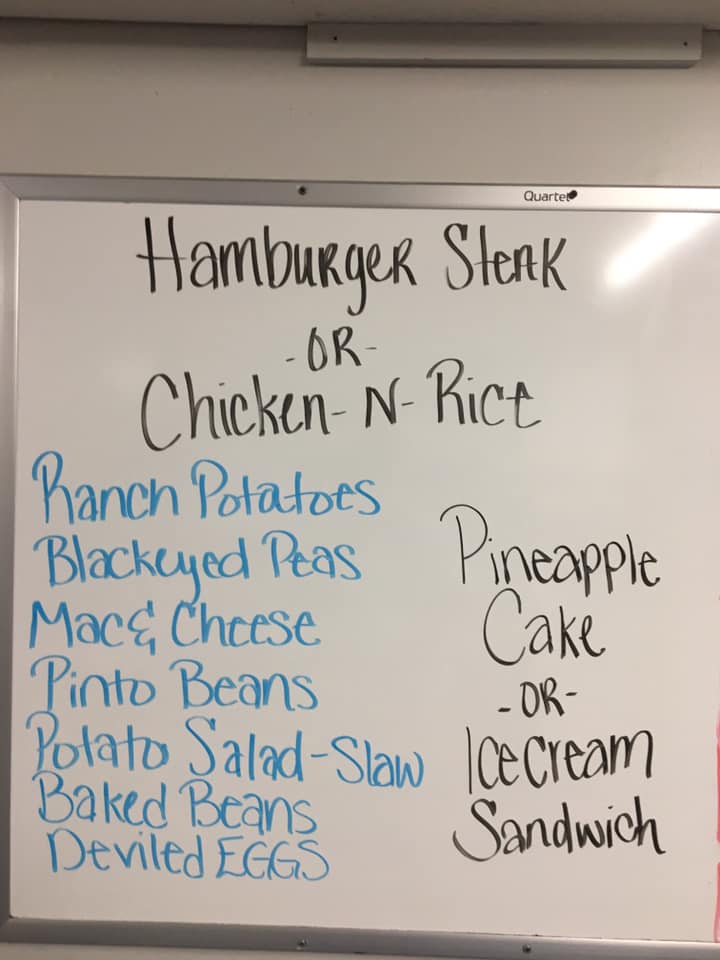 Quartet
Hamburger Steak
-OR-
Chicken-N-Rice
Ranch Potatoes
Blackeyed Peas
Mac & Cheese
Pinto Beans
Potato Salad-Slaw
Baked Beans
Deviled EGGS
Pineapple
Cake
-OR-
Ice Cream
Sandwich